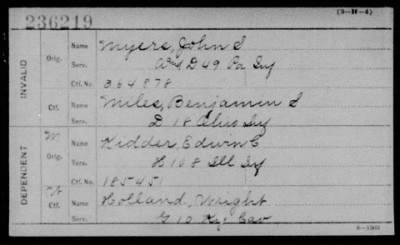 (3-H-4)
236219
INVALID
Orig.
Name Myers, John S
Serv. D 49 Pa Inf
Ctf. No. 364878
Ctf.
Name Miles, Benjamin S
Serv. D 18 Ohio Inf
DEPENDENT
Orig.
Name Kidder, Edwin E
Serv. H 108 Ill Inf
Ctf. No. 185451
Ctf.
Name Holland, Wright
Serv. G 10 Ky. Cav